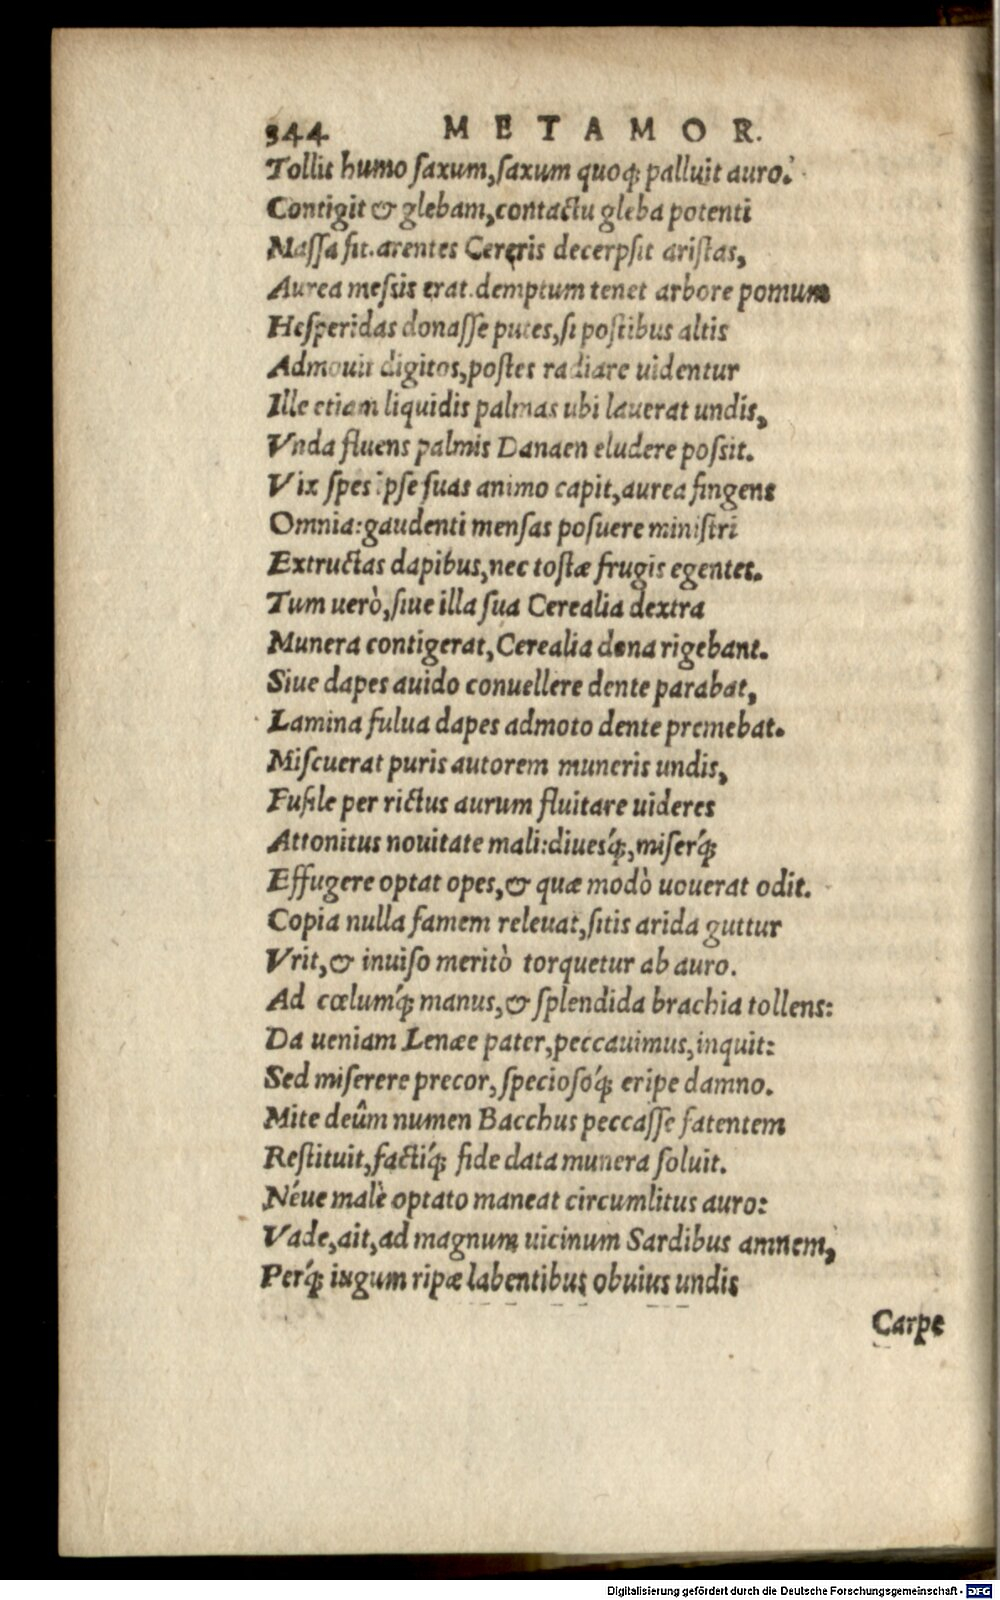 344 METAMOR.
Tollit humo ſaxum, ſaxum quoq; palluit auro.
Contigit & glebam, contactu gleba potenti
Maſſa fit. arentes Cereris decerpſit ariſtas,
Aurea meſsis erat. demptum tenet arbore pomum
Heſperidas donaſſe putes, ſi poſtibus altis
Admouit digitos, poſtes radiare uidentur
Ille etiam liquidis palmas ubi lauerat undis,
Vnda fluens palmis Danaen eludere poſsit.
Vix ſpes ipſe ſuas animo capit, aurea fingens
Omnia: gaudenti menſas poſuere miniſtri
Extructas dapibus, nec toſtæ frugis egentes.
Tum uerò, ſiue illa ſua Cerealia dextra
Munera contigerat, Cerealia dona rigebant.
Siue dapes auido conuellere dente parabat,
Lamina fulua dapes admoto dente premebat.
Miſcuerat puris autorem muneris undis,
Fuſile per rictus aurum fluitare uideres
Attonitus nouitate mali: diuesq́;, miſerq́;
Effugere optat opes, & quæ modò uouerat odit.
Copia nulla famem releuat, ſitis arida guttur
Vrit, & inuiſo meritò torquetur ab auro.
Ad cœlumq́; manus, & ſplendida brachia tollens:
Da ueniam Lenæe pater, peccauimus, inquit:
Sed miſerere precor, ſpecioſoq́; eripe damno.
Mite deûm numen Bacchus peccaſſe fatentem
Reſtituit, factiq́; fide data munera ſoluit.
Néue malè optato maneat circumlitus auro:
Vade, ait, ad magnum uicinum Sardibus amnem,
Perq́; iugum ripæ labentibus obuius undis
Carpe
Digitalisierung gefördert durch die Deutsche Forschungsgemeinschaft - DFG